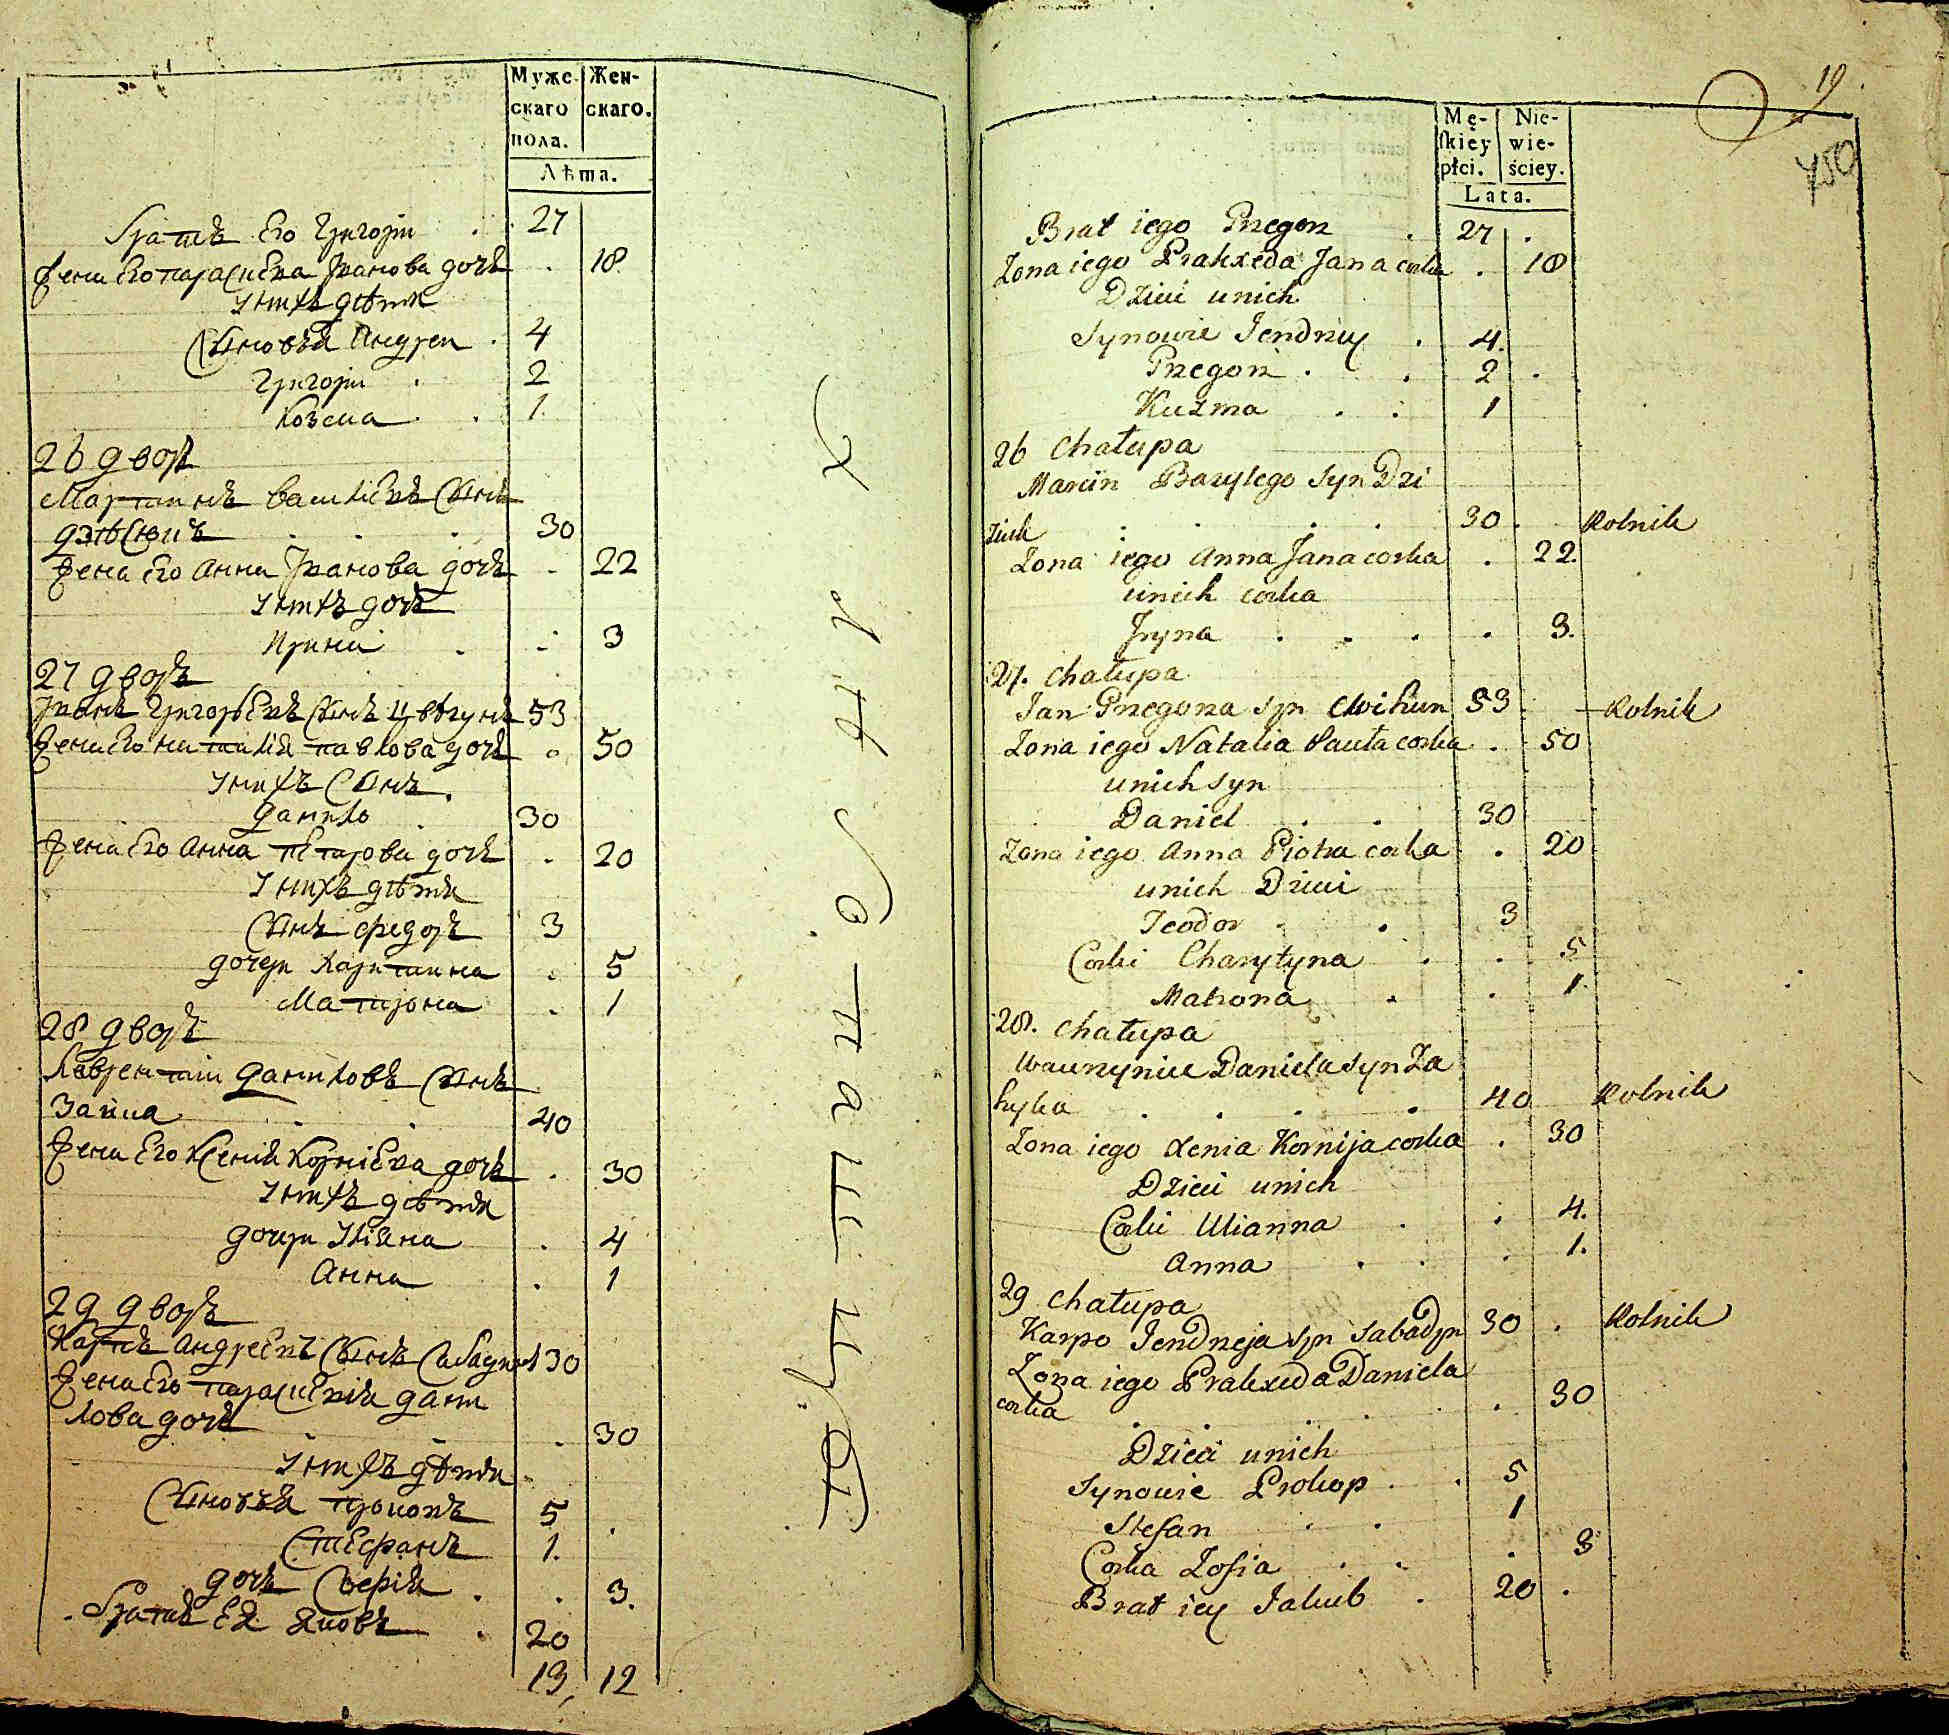 Муже- Жен-
скаго скаго.
пола.
Лѣта.
Братъ Его Григорiй . 27
Жена Его параскева Иванова дочь . 18
У нихъ дѣти
Сыновья Андрей . 4
Григорiй . 2
Козма . . 1
26 дворъ
Мартинъ василiевъ Сынъ
. . . 30
Жена Его Анна Иванова дочь . 22
У нихъ дочь
Ирина . . 3
27 дворъ
Иванъ Григорьевъ Сынъ Цвѣгунъ 53
Жена Его наталiя павлова дочь . 50
У нихъ Сынъ.
данило . 30
Жена Его Анна Петрова дочь . 20
У нихъ дѣти
Сынъ федоръ 3
дочери Харитина . 5
Матрона . 1
28 дворъ
Лаврентiй даниловъ Сынъ
Заика . . 40
Жена Его Ксенiя Корнiева дочь . 30
У нихъ дѣти
дочери Улiяна . 4
Анна . 1
29 дворъ
Карпъ Андреевъ Сынъ Сабадин 30
Жена Его параскевiя дани
лова дочь . . 30
У нихъ дѣти
Сыновья прокопъ 5 .
Стефанъ 1.
дочь Софiя . . 3.
Братъ Ея Яковъ . 20
13, 12
19
450
Mę- Nie-
skiey wie-
płci. ściey.
Lata.
Brat iego Grzegorz . 27 .
Zona iego Prakseda Jana corka . 18
Dzieci unich
Synowie Jendrzy . 4.
Grzegorz . . 2 .
Kuzma . . 1
26 Chałupa
Marcin Bazylego syn Dzi
. . . . 30 . Rolnik
Zona iego Anna Jana corka . 22.
unich corka
Jryna . . . . 3.
27. Chałupa
Jan Grzegorza syn Cwihun 53 Rolnik
Zona iego Natalia Pauła corka . 50
unich syn
Daniel . . 30
Zona iego Anna Piotra corka . 20
unich Dzieci
Teodor . . 3
Corki Charytyna . . 5
Matrona . . 1.
28. Chałupa
Wawrzyniec Daniela syn Za
hyka . . . . 40 Rolnik
Zona iego Xenia Kornija corka . 30
Dzieci unich
Corki Ulianna . . 4.
Anna . . . 1.
29 Chałupa
Karpo Jendrzeja syn Sabadyn 30 . Rolnik
Zona iego Prakseda Daniela
corka . . . . 30
Dzieci unich
Synowie Prokop . . 5
Stefan . . 1
Corka Zofia . . . 3
Brat iey Jakub . 20 .